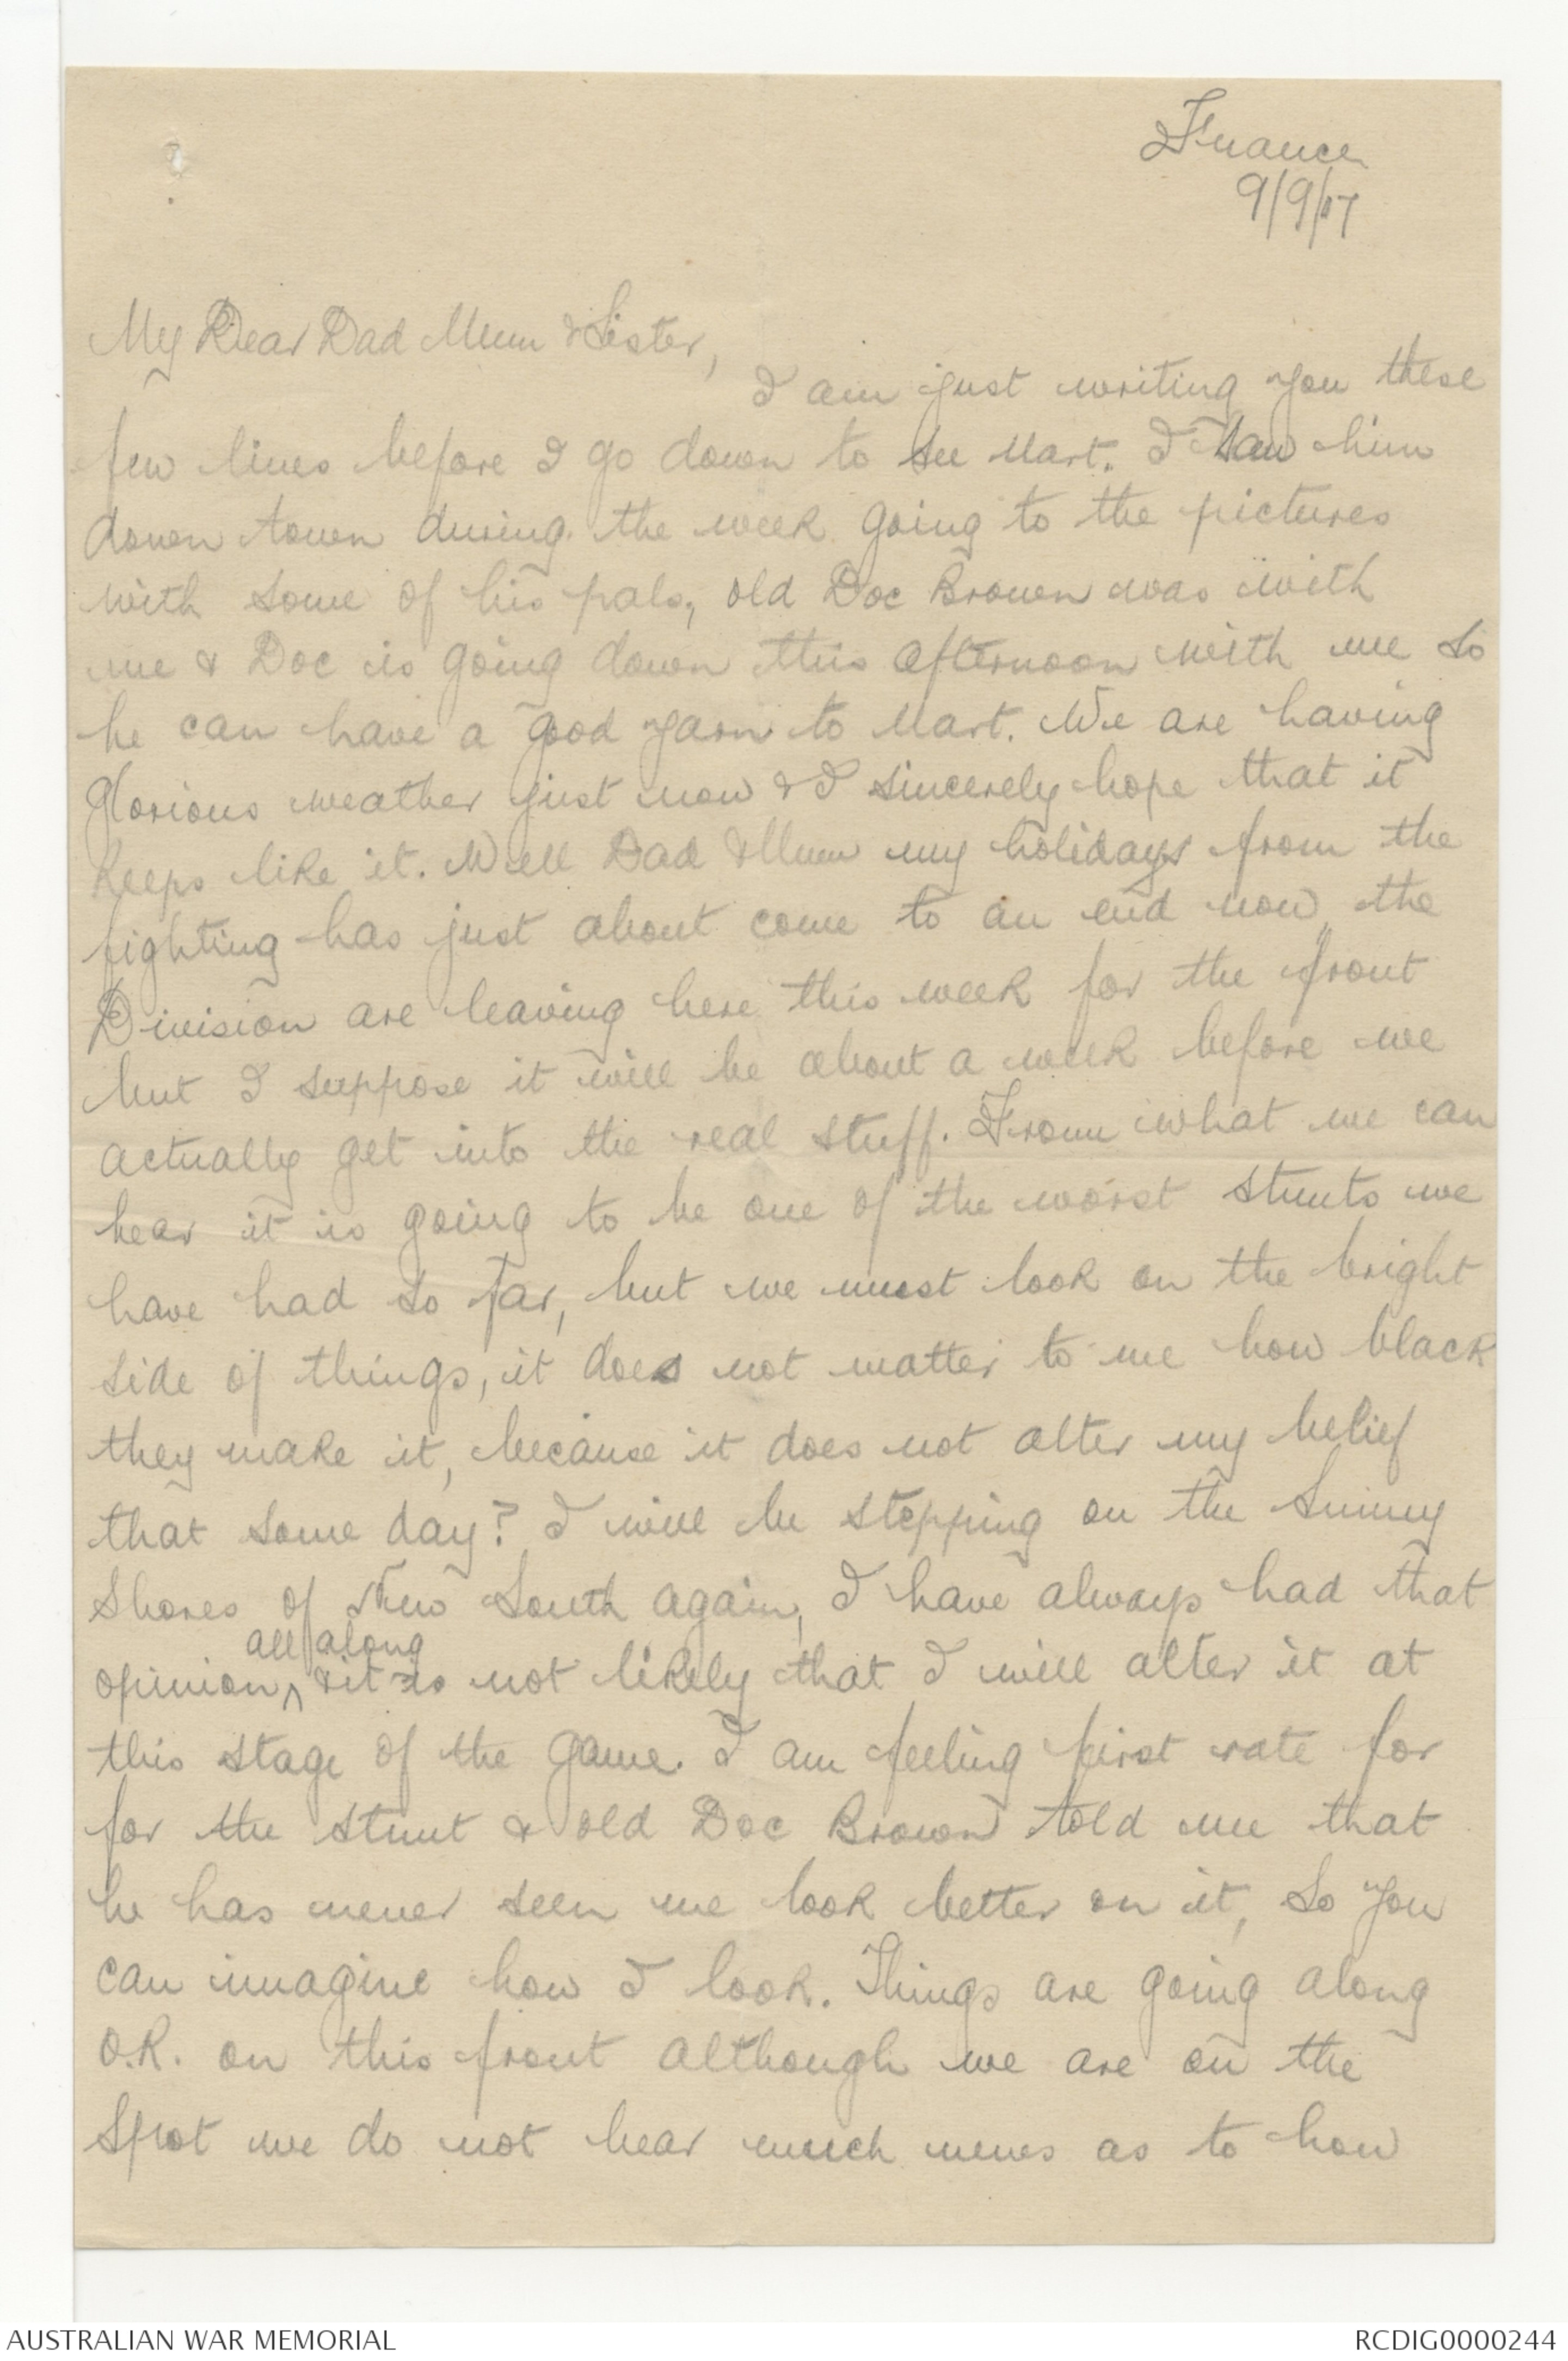 France
9/9/17
My Dear Dad Mum & Sister,
I am just writing you these
few lines before I go down to see Mart. I saw him
down town during the week going to the pictures
with some of his pals, old Doc Brown was with
me & Doc is going down this afternoon with me so
he can have a good yarn to Mart. We are having
glorious weather just now & I sincerely hope that it
keeps like it. Well Dad & Mum my holidays from the
fighting has just about come to an end now, the
Division are leaving here this week for the front
but I suppose it will be about a week before we
actually get into the real stuff. From what we can
hear it is going to be one of the worst stunts we
have had so far, but we must look on the bright
side of things, it does not matter to me how black
they make it, because it does not alter my belief
that some day? I will be stepping on the Sunny
Shores of New South again, I have always had that
all along
opinion ^ & it is not likely that I will alter it at
this stage of the game. I am feeling first rate for
for the stunt & old Doc Brown told me that
he has never seen me look better on it, so you
can imagine how I look. Things are going along
O.K. on this front although we are on the
spot we do not hear much news as to how
AUSTRALIAN WAR MEMORIAL
RCDIG0000244